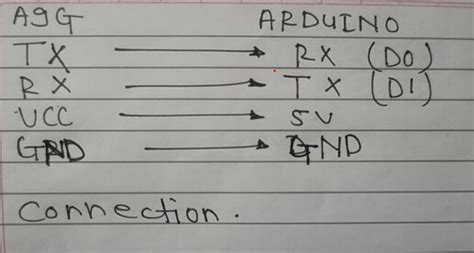 A9G ARDUINO
TX → RX (D0)
RX → TX (D1)
VCC → 5V
GND → GND
Connection.